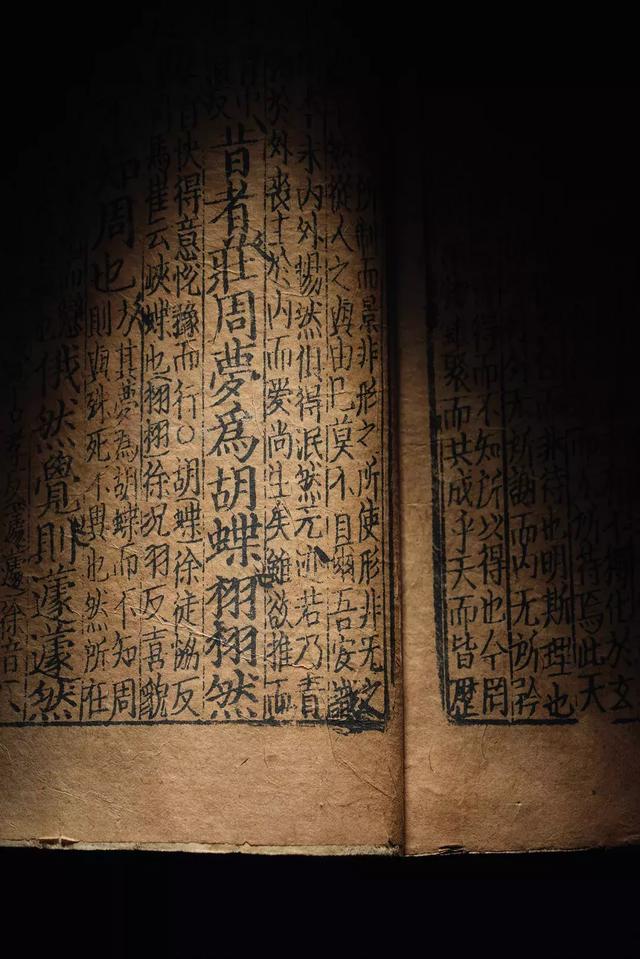 化於玄
所待焉此天
非待也明斯理也
外无所謝而內无所矜
得而不知所以得也今罔
聚而共成乎天而皆歷
所制而景非形之所使形非无之
然從人之與由已莫不自爾吾安識
末內外暢然俱得泯然无迹若乃責
於外喪主於內而愛尚生矣雖欲推而
昔者莊周夢爲胡蝶栩栩然
快得意悅豫而行○胡蝶徐徒協反
馬崔云蛺蝶也栩栩徐況羽反喜貌
知周也
方其夢爲胡蝶而不知周
則與殊死不異也然所在
俄然覺則蘧蘧然